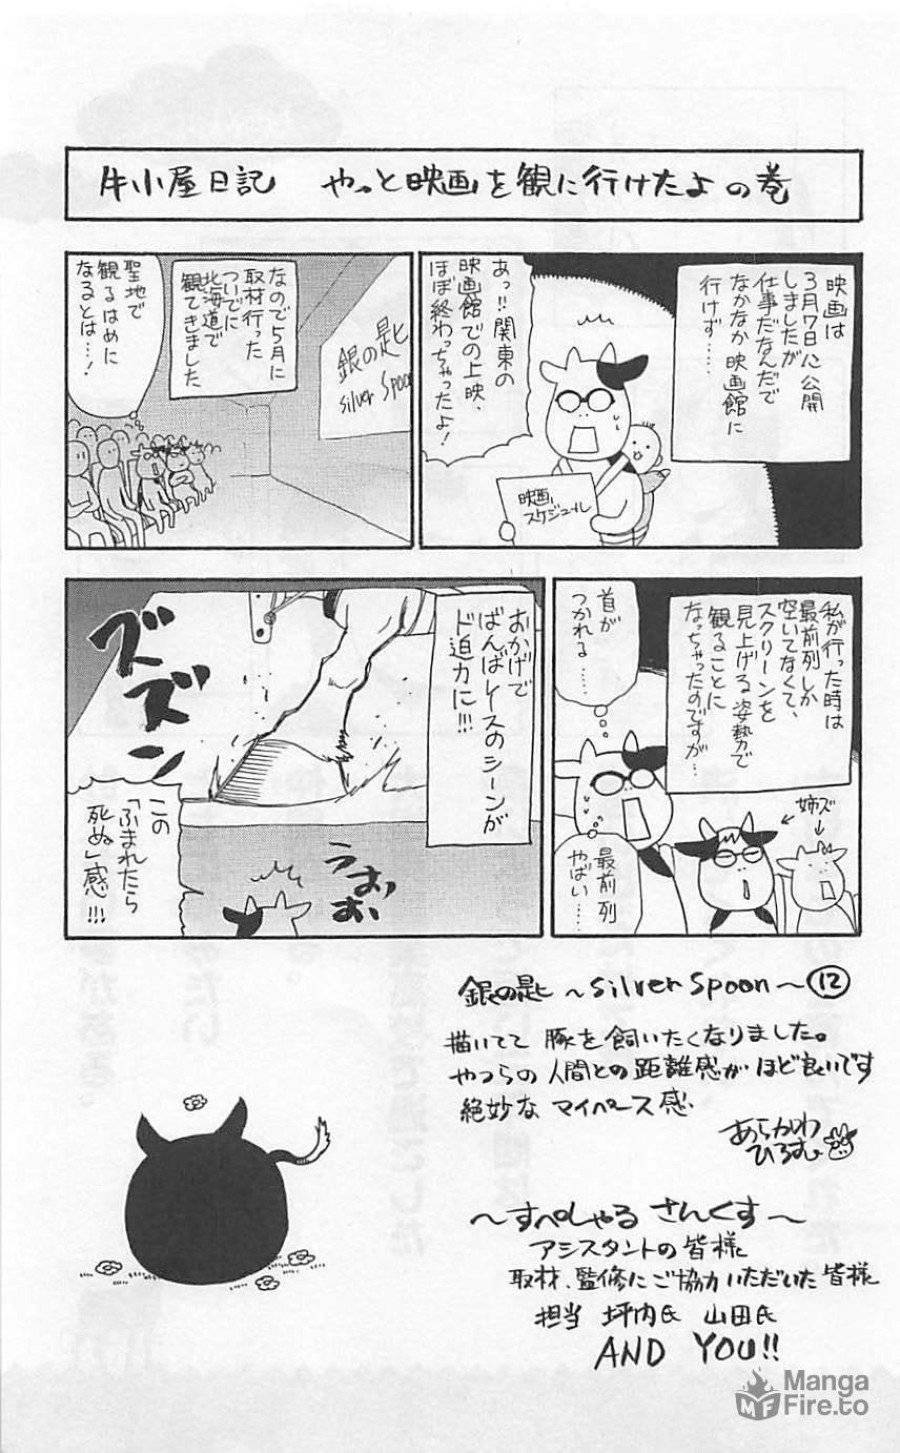 牛小屋日記 やっと映画を観に行けたよの巻
映画は
3月7日に公開
しましたが
仕事だなんだで
なかなか映画館に
行けず……
あっ!!関東の
映画館での上映、
ほぼ終わっちゃったよ!
映画
スケジュール
なので5月に
取材行った
ついでに
北海道で
観てきました
銀の匙
silver Spoon
聖地で
観るはめに
なるとは…!
私が行った時は
最前列しか
空いてなくて、
スクリーンを
見上げる姿勢で
観ることに
なっちゃったのですが…
首が
つかれる……
最前列
やばい……
姉ズ
おかげで
ばんばレースのシーンが
ド迫力に!!!
ズズン
うおぉぉ
この
「ふまれたら
死ぬ」感!!!
銀の匙 ~Silver Spoon~ ⑫
描いてて 豚を飼いたくなりました。
やつらの人間との距離感がほど良いです
絶妙な マイペース感
あらかわ
ひろむ
~すぺしゃる さんくす~
アシスタントの皆様
取材、監修にご協力いただいた皆様
担当 坪内氏 山田氏
AND YOU!!
Manga
Fire.to
MF